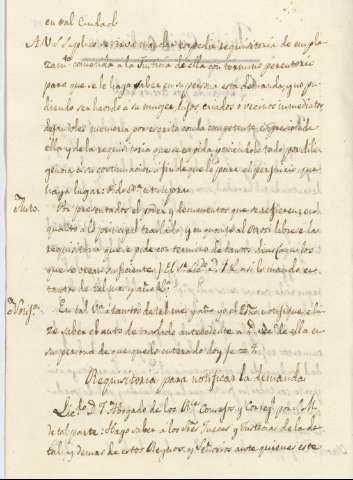 en tal Ciudad
A V. Suplico se sirva mandar expedir requisitoria de empla-
zamto cometida a la Justicia de ella con termino perentorio
para que se le haga saber en su persona esta demanda, y no pu-
diendo ser havido a su muger, hijos criados o vecinos inmediatos
dejandoles memoria por escrito con la competente expresion de
ella y de la requisitoria que se expida poniendolo todo por dili-
gencia a su continuacion i fin de que le pare el perjuicio que
haya lugar: Pido Justa ut supra.
Auto. Por presentados el poder y documentos que se refieren; en
quanto a lo principal traslado y en quanto al Otrosi librese la
requisitoria que se pide con termino de tantos dias para los
que se crean suficientes. El Sr. D. F. asi lo mando en
tanto de tal mes y año &a.
Notifon. En tal Cd. a tantos de tal mes y año yo el Essno notifique e hi-
ce saber el auto de traslado antecedente a D. de ella en
su persona de que quedo enterado doy fe =
Requisitoria para notificar la demanda
Licdo. D. F. Abogado de los Rs. Consejos y Corregr. por S. M.
de tal parte: Hago saber a los Sres. Jueces y Justicias de la de
tal y demas de estos Reynos y Señorios ante quienes este